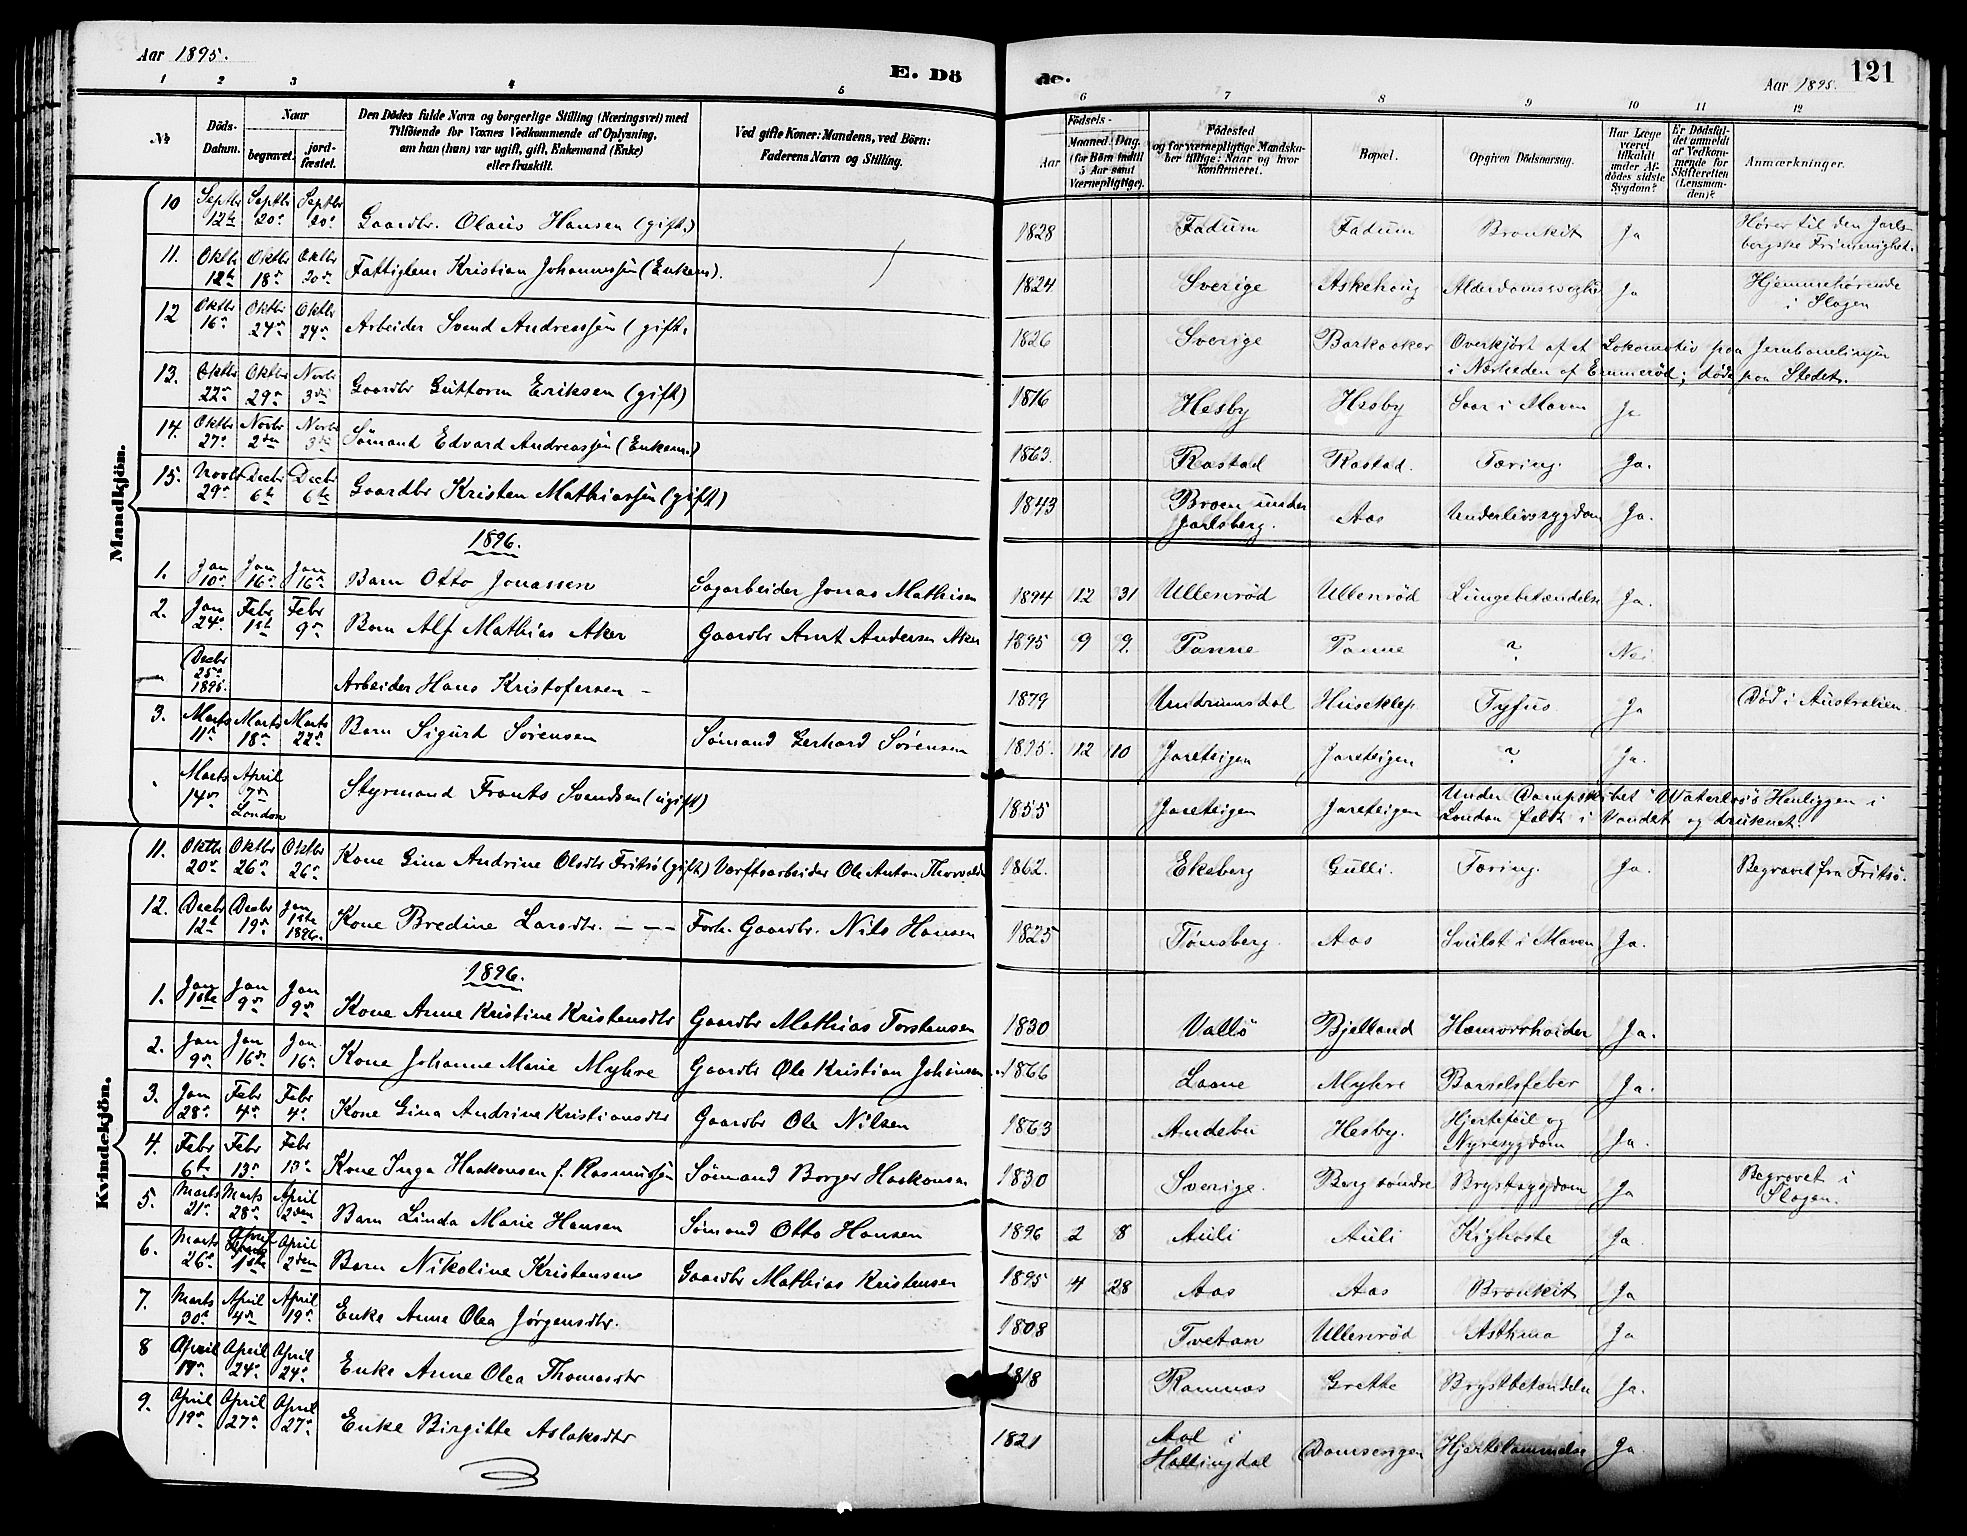 Aar 1895.
E. Dö
de.
Aar 1895.
121
1 2 3 4 5 6 7 8 9 10 11 12
No
Döds-Datum.
Naar
begravet.
jord-fæstet.
Den Dödes fulde Navn og borgerlige Stilling (Næringsvei) med
Tilföiende for Voxnes Vedkommende af Oplysning,
om han (hun) var ugift, gift, Enkemand (Enke)
eller fraskilt.
Ved gifte Koner: Mandens, ved Börn:
Faderens Navn og Stilling.
Födsels-
Aar
Maaned. Dag.
(for Börn indtil
5 Aar samt
Værnepligtige).
Födested
og for værnepligtige Mandska-
ber tillige: Naar og hvor
konfirmeret.
Bopæl.
Opgiven Dödsaarsag.
Har Læge
været
tilkaldt
under Af-
dödes sidste
Sygdom?
Er Dödsfal-
det anmeldt
af Vedkom-
mende for
Skifteretten
(Lensman-
den)?
Anmærkninger.
Mandkjön.
10 Septbr 12te Septbr 20de Septbr 20de Gaardbr. Olaus Hansen (gift.) 1828 Fadum Fadum Bronkit Ja Hører til den Jarlsbergske Frimenighet.
11. Oktbr 12te Oktbr 18de Oktbr 20de Fattiglem Kristian Johannessen (Enkem). 1824 Sverige Askehoug Alderdomssvaghed Ja Hjemmehørende i Slagen
12 Oktbr 16de Oktbr 24de Oktbr 24de Arbeider Svend Andreassen (gift. 1826 Sverige Barkaaker Overkjørt af et Lokomotiv paa Jernbanelinjen
i Nærheden af Emmerød; døde paa Stedet.
13. Oktbr 22de Oktbr 29de Novbr 3die Gaardbr Guttorm Eriksen (gift) 1816 Hesby Hesby Saar i Maven Ja
14. Oktbr 27de Novbr 2den Novbr 3die Sömand Edvard Andreassen (Enkem.) 1863. Rastad Rastad. Tæring. Ja.
15. Novbr 29de Decbr 6te Decbr 6te Gaardbr Kristen Mathiassen (gift) 1843 Broen under Jarlsberg. Aas Underlivssygdom Ja.
1896.
1. Jan 10de Jan 16de Jan 16de Barn Otto Jonassen Sagarbeider Jonas Mathisen 1894 12 31 Ullenrød Ullenrød Lungebetændelse Ja.
2. Jan 24de Febr 1ste Febr 9de Barn Alf Mathias Aker Gaardbr Anrt Andersen Aker 1895 9 9. Tanne Tanne ? Nei.
– Decbr 25de 1895. Arbeider Hans Kristofersen – 1879 Undrumsdal Huseklep Tyfus Ja Död i Australien.
3. Marts 11te Marts 18de Marts 22de Barn Sigurd Sørensen Sømand Gerhard Sørensen 1895. 12 10 Jareteigen Jareteigen ? Ja.
Marts 14de April 7de London Styrmand Frants Svendsen (ugift) 1855 Jareteigen Jareteigen Under Dampskibet "Waterloo's" Henliggen i
London faldt i Vandet og druknet.
Kvindekjön.
11. Oktbr 20de Oktbr 26de Oktbr 26de Kone Gina Andrine Olsdtr Fritsø (gift) Værftsarbeider Ole Anton Thorvalds 1862. Ekeberg Gulli. Tæring. Ja. Begravet fra Fritsø.
12. Decbr 12te Decbr 19de Jan 1ste 1896. Kone Bredine Larsdtr. – – – Forh. Gaardbr. Nils Hansen 1825 Tønsberg. Aas Svulst i Maven Ja.
1896.
1. Jan 1ste Jan 9de Jan 9de Kone Anne Kristine Kristensdtr Gaardbr Mathias Torstensen 1830 Vallø Bjelland Hæmorrhoider Ja.
2. Jan 9de Jan 16de Jan. 16de Kone Johanne Marie Myhre Gaardbr Ole Kristian Johansen 1866 Laane Myhre Barselsfeber Ja.
3. Jan 28de Febr 4de Febr 4de Kone Gina Andrine Kristiansdtr Gaardbr Ole Nilsen 1863 Andebu Hesby. Hjertefeil og Nyresygdom Ja.
4. Febr 6te Febr 13de Febr 13de Kone Inga Haakonsen f. Rasmussen Sømand Borger Haakonsen 1830 Sverige. Berg söndre Brystsygdom Ja Begravet i Slagen.
5. Marts 21de Marts 28de April 2den Barn Linda Marie Hansen Sømand Otto Hansen 1896 2 8 Auli Auli Kighoste Ja
6. Marts 26de April 1ste April 2den Barn Nikoline Kristensene Gaardbr Mathias Kristensen 1895 4 28 Aas Aas Bronkit Ja
7. Marts 30te April 4de April 19de Enke Anne Olea Jørgensdtr. 1808 Tvetan Ullenrød Asthma Ja
8 April 17de April 24de April 24de Enke Anne Olea Thomasdtr 1818 Ramnæs Grette Brystbetændelse Ja.
9. April 19de April 27de April 27de Enke Birgitte Aslaksdtr 1821 Aal i Hallingdal Damsengen Hjertelammelse Ja.